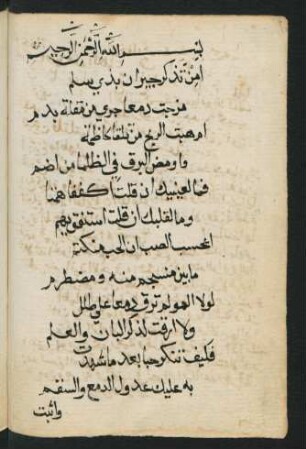 بسم الله الرحمن الرحيم
امن تذكر جيران بذي سلم
مزجت دمعا جرى من مقلة بدم
ام هبت الريح من تلقا كاظمة
واومض البرق في الظلما من اضم
فما لعينيك ان قلت اكففا همتا
وما لقلبك ان قلت استفق يهم
ايحسب الصب ان الحب منكتم
ما بين منسجم منه ومضطرم
لولا الهوى لم ترق دمعا على طلل
ولا ارقت لذكر البان والعلم
فكيف تنكر حبا بعد ما شهدت
به عليك عدول الدمع والسقم
واثبت